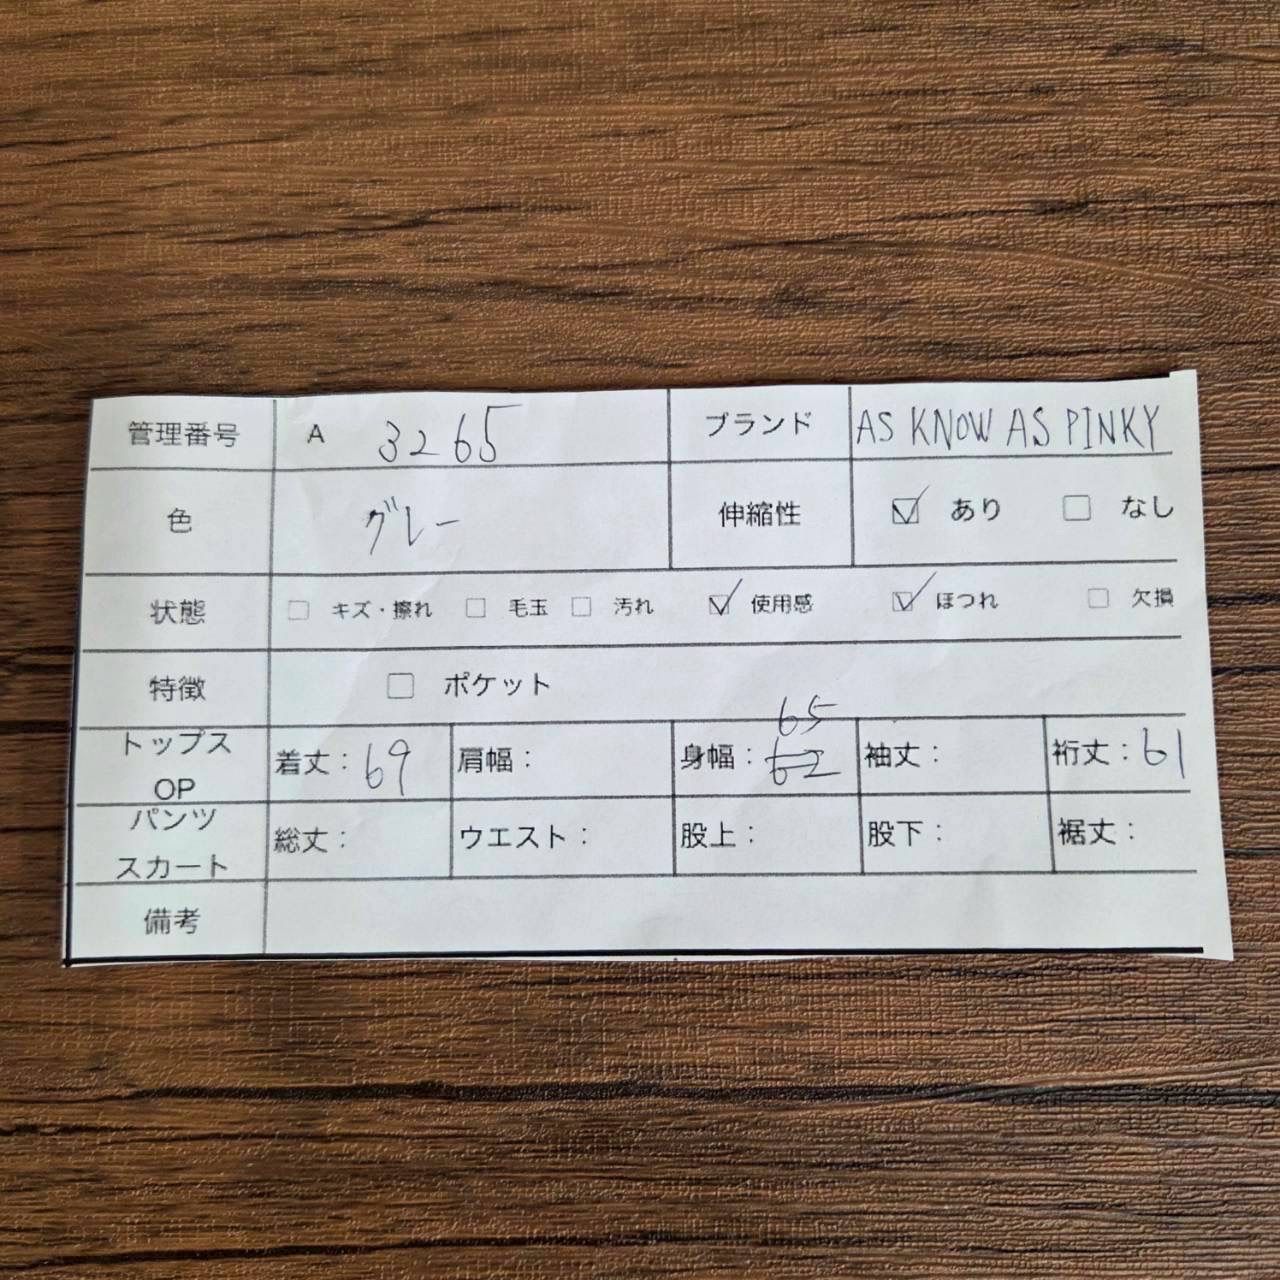 管理番号 A 3265 ブランド AS KNOW AS PINKY
色 グレー 伸縮性 ☑ あり ☐ なし
状態 ☐ キズ・擦れ ☐ 毛玉 ☐ 汚れ ☑ 使用感 ☑ ほつれ ☐ 欠損
特徴 ☐ ポケット
65
トップス OP 着丈：69 肩幅： 身幅：62 袖丈： 裄丈：61
パンツ スカート 総丈： ウエスト： 股上： 股下： 裾丈：
備考